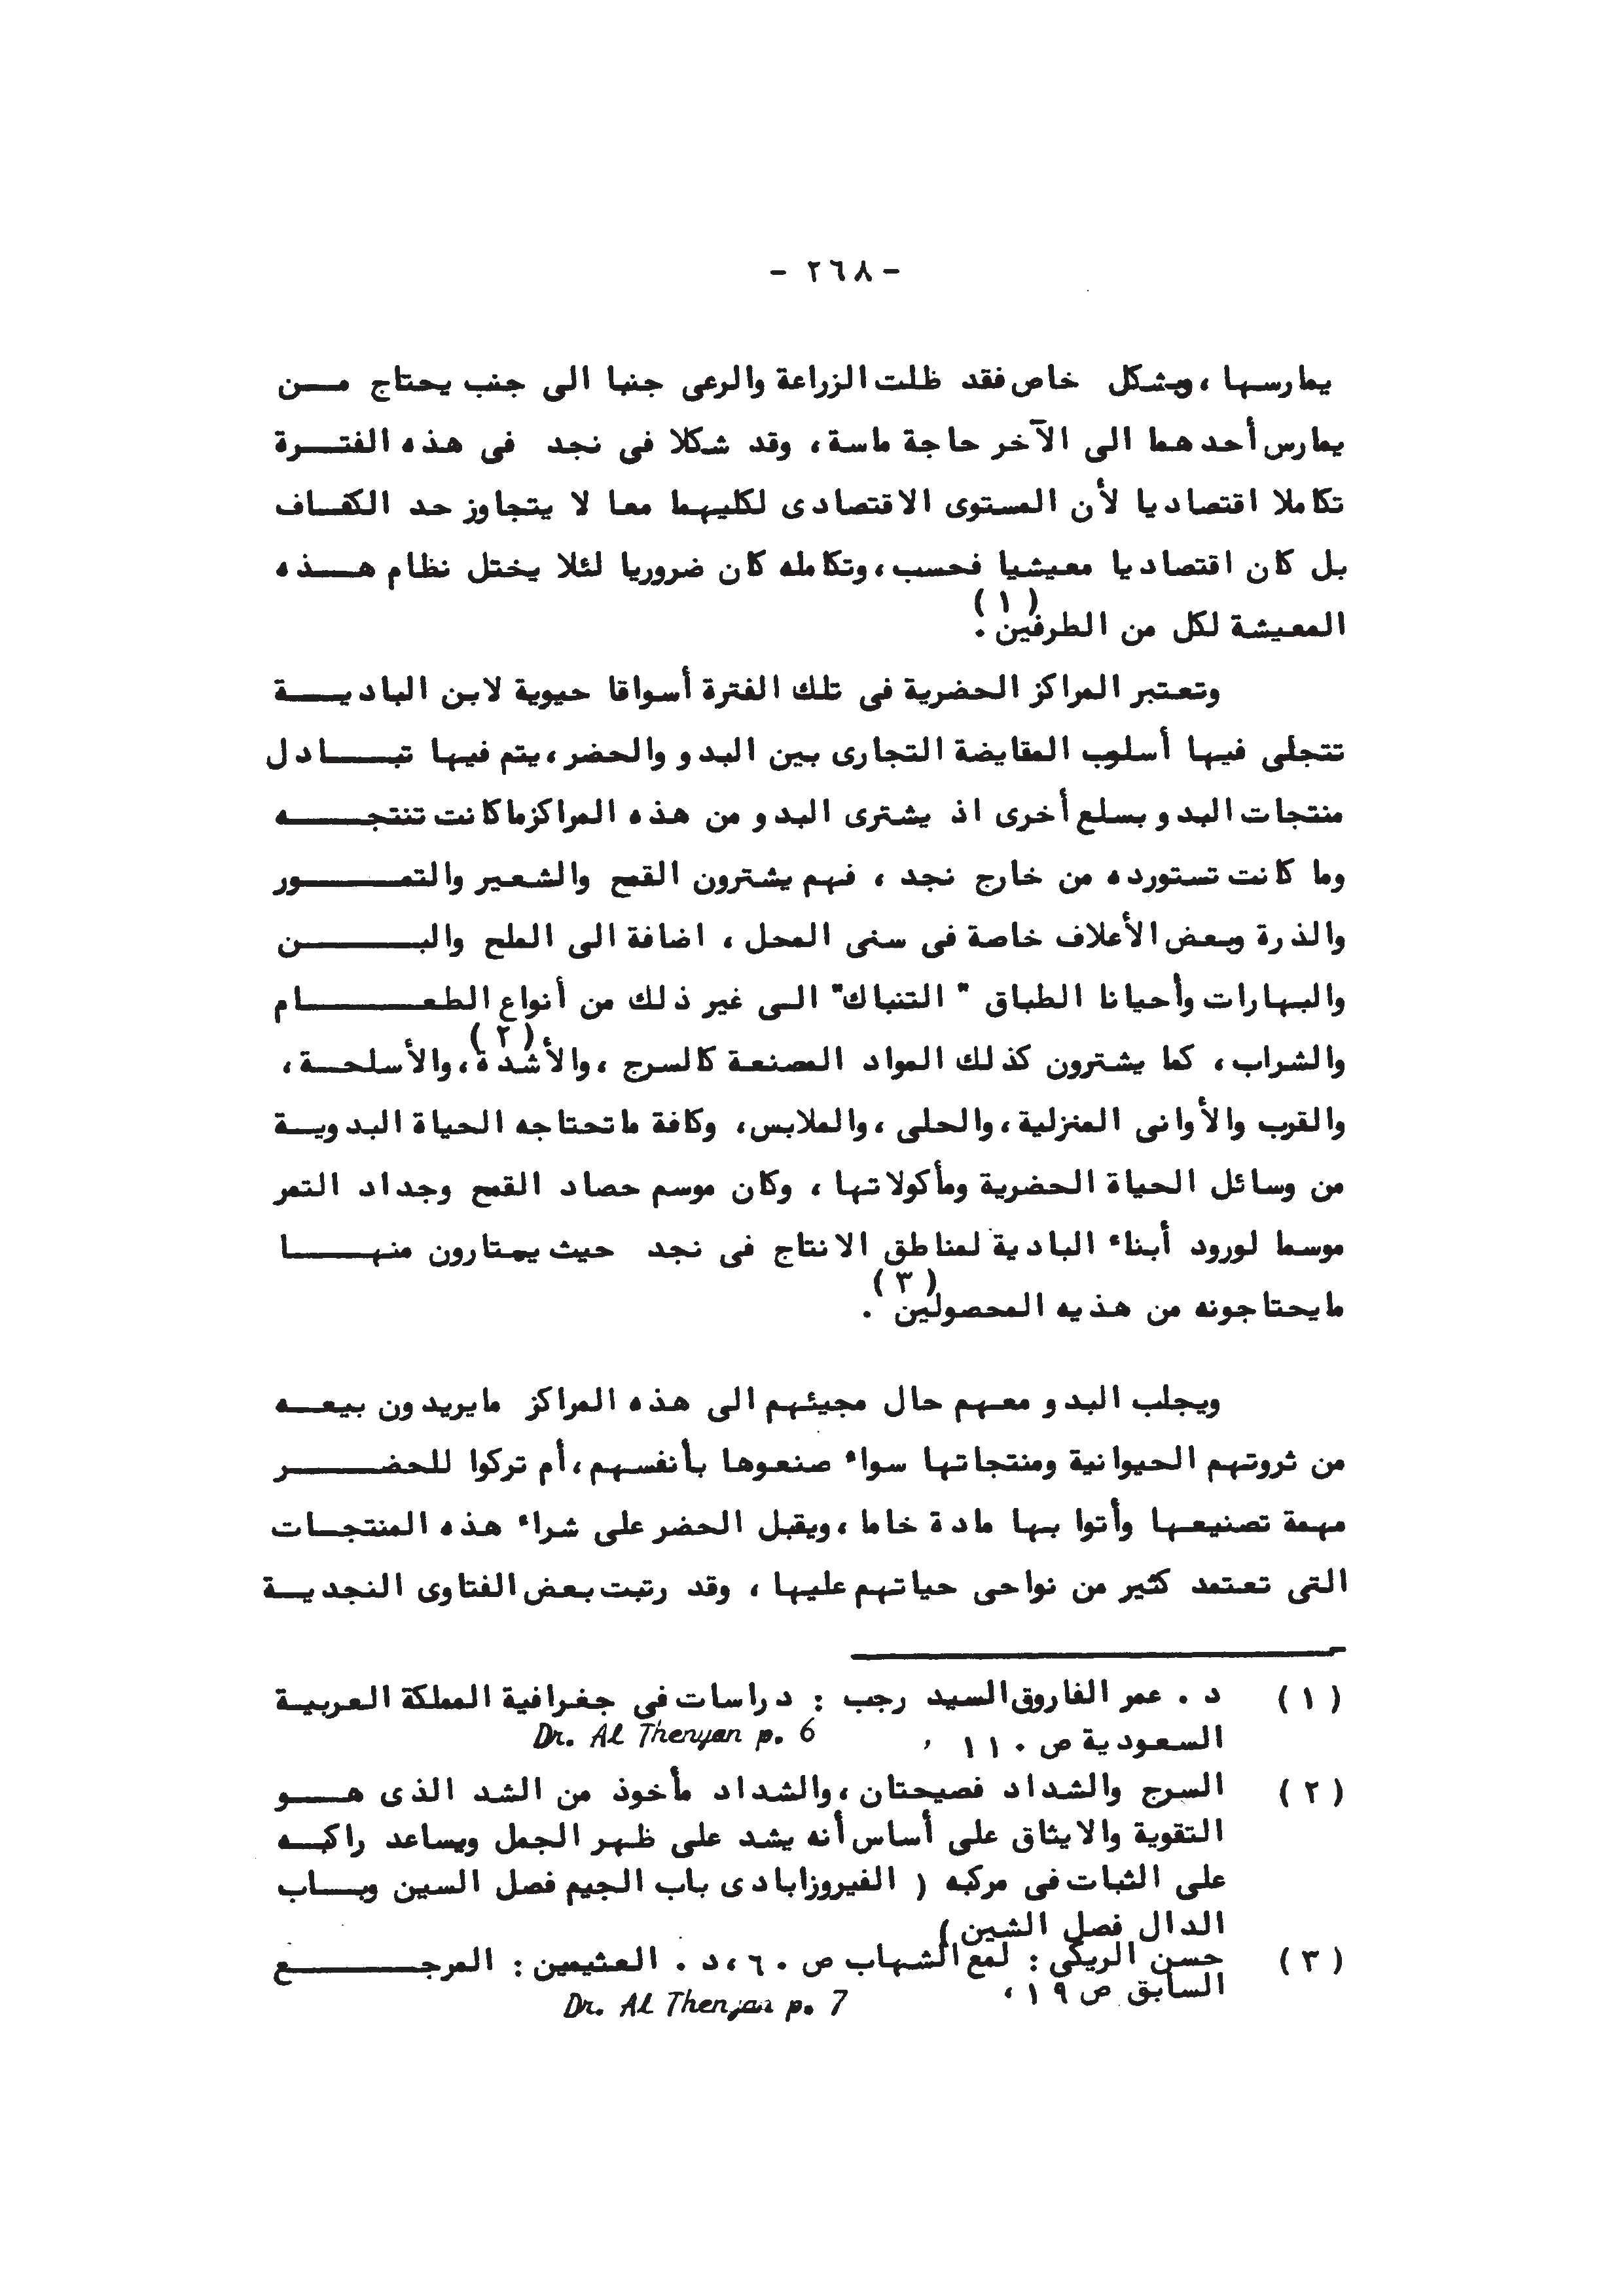 - ٢٦٨ -
يمارسها ، وبشكل خاص فقد ظلت الزراعة والرعى جنبا الى جنب يحتاج من
يمارس أحدهما الى الآخر حاجة ماسة ، وقد شكلا فى نجد فى هذه الفترة
تكاملا اقتصاديا لأن المستوى الاقتصادى لكليهما معا لا يتجاوز حد الكفاف
بل كان اقتصاديا معيشيا فحسب ، وتكامله كان ضروريا لئلا يختل نظام هذه
المعيشة لكل من الطرفين (١) .
وتعتبر المراكز الحضرية فى تلك الفترة أسواقا حيوية لابن البادية
تتجلى فيها أسلوب المقايضة التجارى بين البدو والحضر ، يتم فيها تبادل
منتجات البدو بسلع أخرى اذ يشترى البدو من هذه المراكز ماكانت تنتجه
وما كانت تستورده من خارج نجد ، فهم يشترون القمح والشعير والتمور
والذرة وبعض الأعلاف خاصة فى سنى المحل ، اضافة الى الملح والبن
والبهارات وأحيانا الطباق " التنباك" الى غير ذلك من أنواع الطعام
والشراب ، كما يشترون كذلك المواد المصنعة كالسرج ، والأشدة (٢) ، والأسلحة ،
والقرب والأوانى المنزلية ، والحلى ، والملابس ، وكافة ماتحتاجه الحياة البدوية
من وسائل الحياة الحضرية ومأكولاتها ، وكان موسم حصاد القمح وجداد التمر
موسما لورود أبناء البادية لمناطق الانتاج فى نجد حيث يمتارون منها
مايحتاجونه من هذيه المحصولين (٣) .
ويجلب البدو معهم حال مجيئهم الى هذه المراكز مايريدون بيعه
من ثروتهم الحيوانية ومنتجاتها سواء صنعوها بأنفسهم ، أم تركوا للحضر
مهمة تصنيعها وأتوا بها مادة خاما ، ويقبل الحضر على شراء هذه المنتجات
التى تعتمد كثير من نواحى حياتهم عليها ، وقد رتبت بعض الفتاوى النجدية
(١) د . عمر الفاروق السيد رجب : دراسات فى جغرافية المملكة العربية
السعودية ص ١١٠ ، Dr. Al Thenyan p. 6
(٢) السرج والشداد فصيحتان ، والشداد مأخوذ من الشد الذى هو
التقوية والايثاق على أساس أنه يشد على ظهر الجمل ويساعد راكبه
على الثبات فى مركبه ( الفيروزابادى باب الجيم فصل السين وباب
الدال فصل الشين )
(٣) حسن الريكى : لمع الشهاب ص ٦٠ ، د . العثيمين : المرجع
السابق ص ١٩ ، Dr. Al Thenyan p. 7